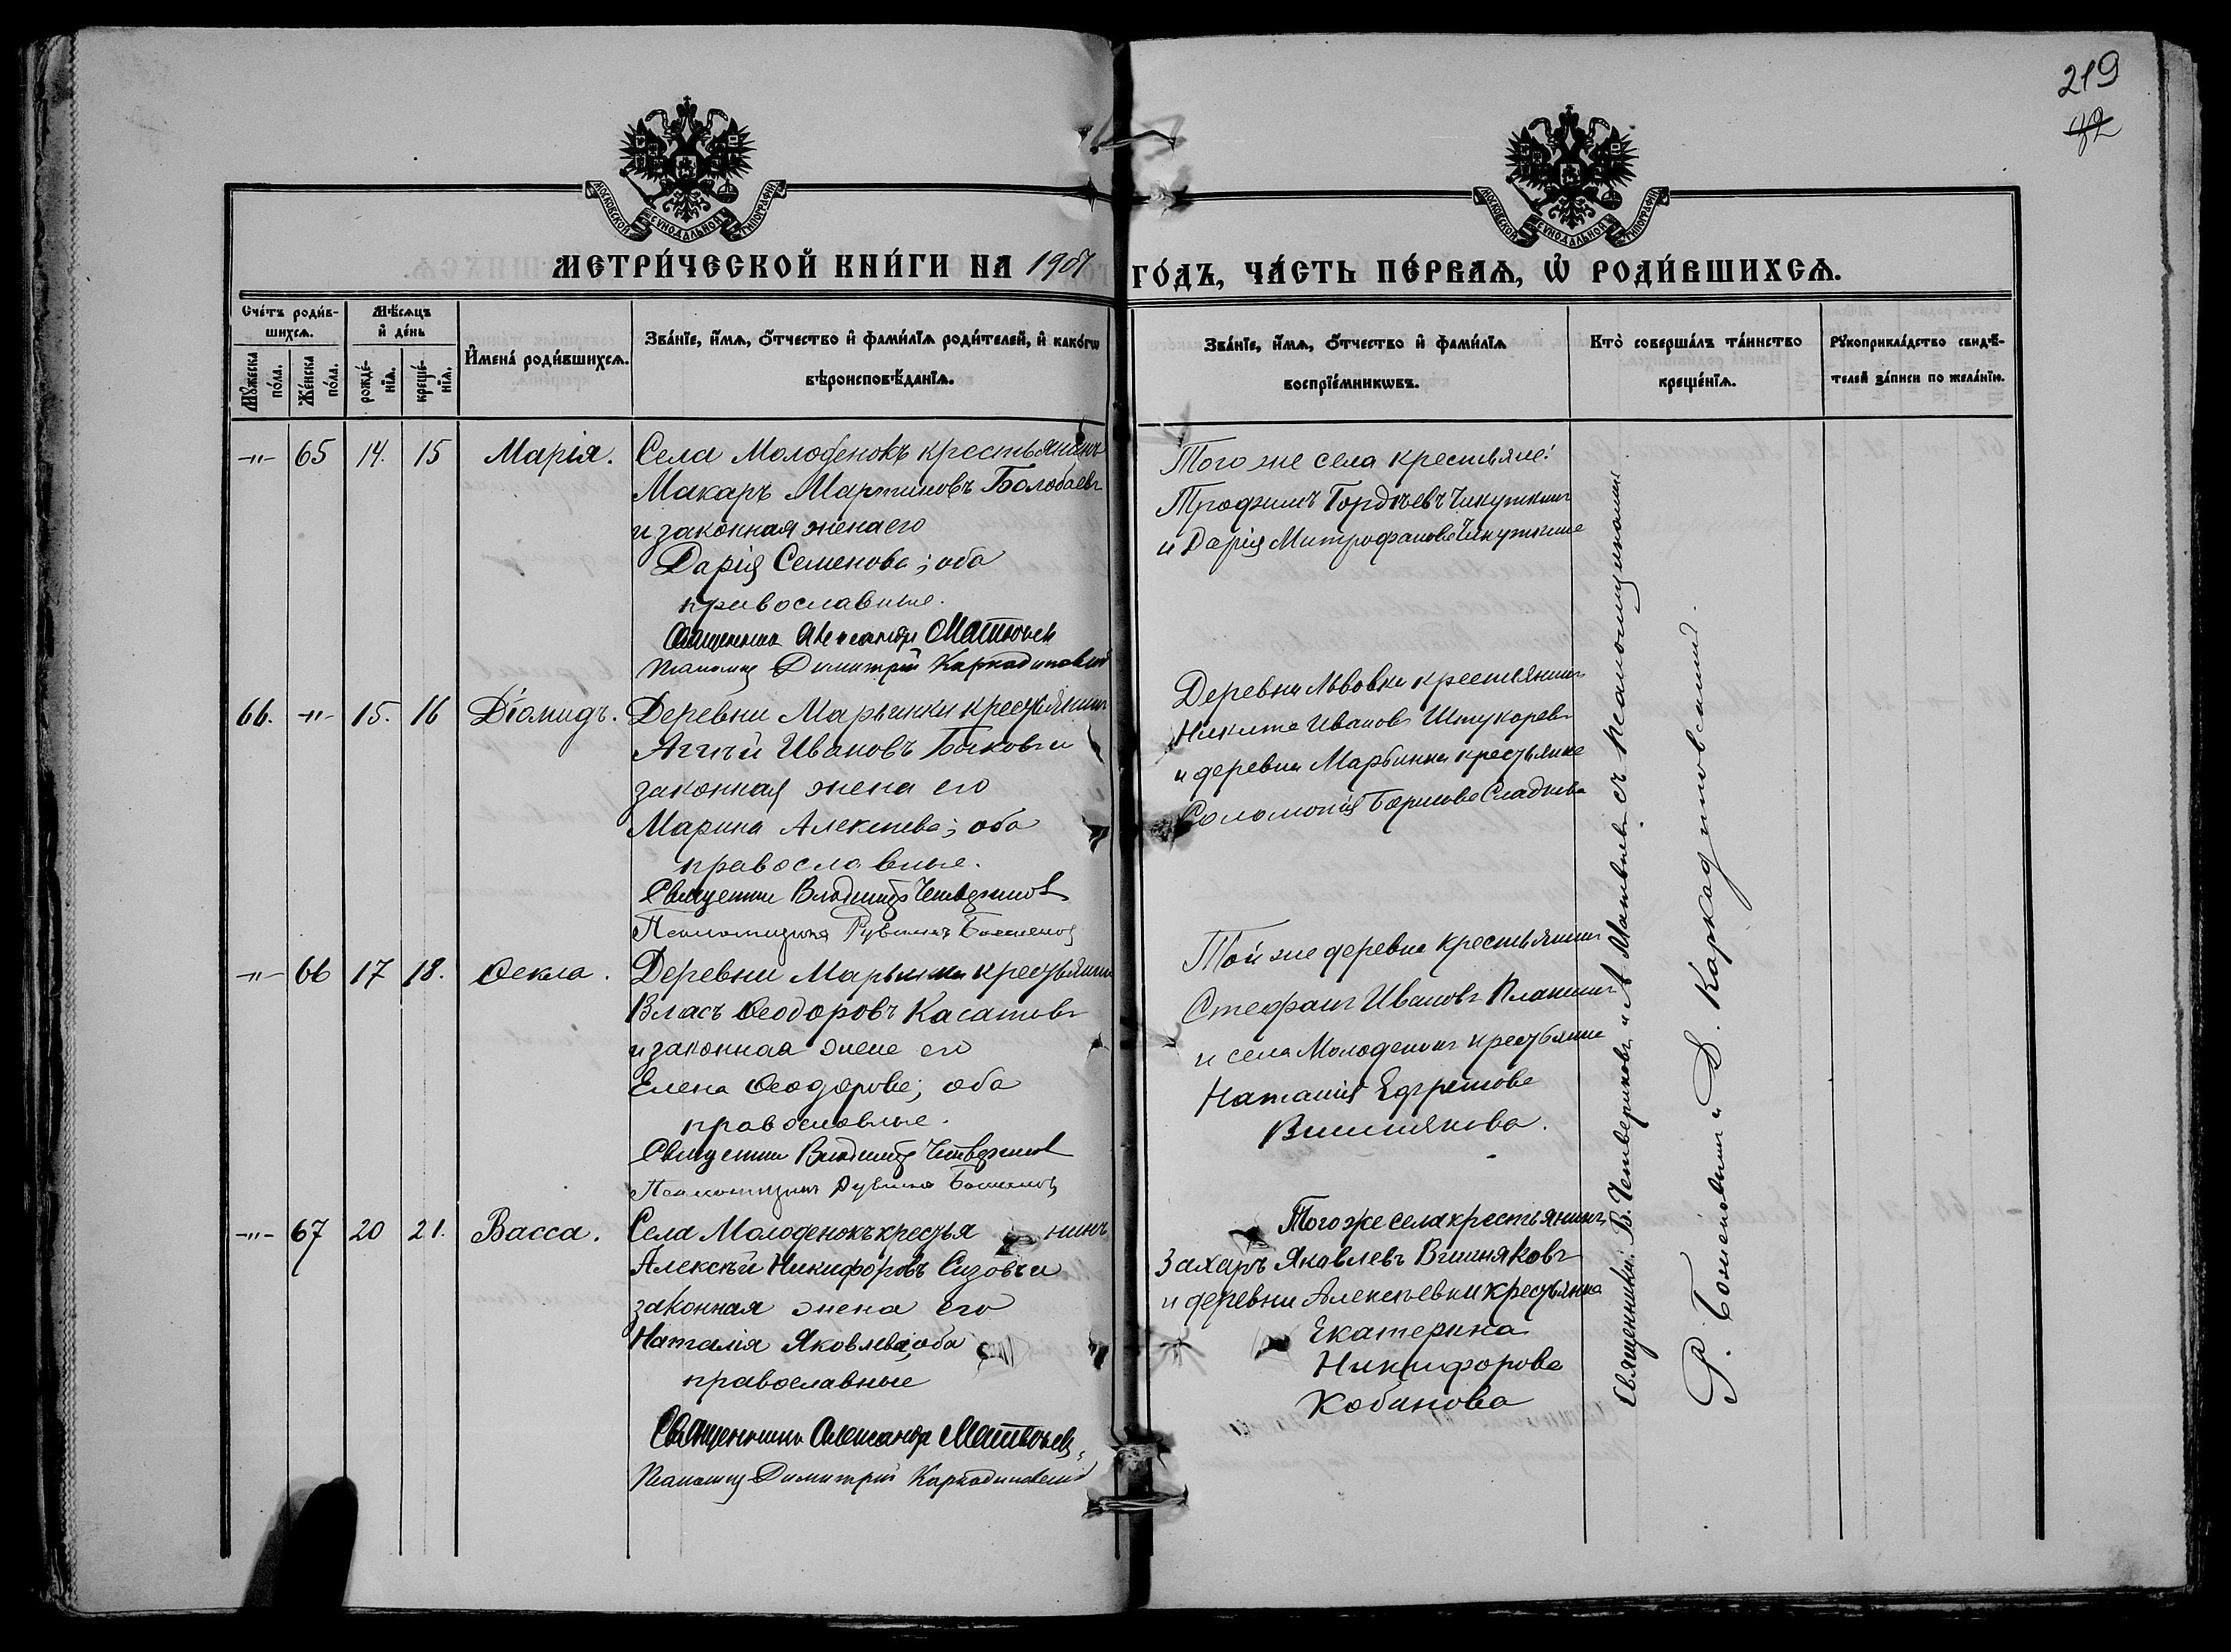 219
82
МОСКОВСКОЙ СѴНОДАЛЬНОЙ ТИПОГРАФІИ
МОСКОВСКОЙ СѴНОДАЛЬНОЙ ТИПОГРАФІИ
МЕТРИ́ЧЕСКОЙ КНИ́ГИ НА 1901 ГО́ДЪ, ЧА́СТЬ ПЕ́РВАѦ, Ѡ҆ РОДИ́ВШИХСѦ.
Сче́тъ роди́в-
шихсѧ.
Мꙋ́жеска по́ла.
Же́нска по́ла.
Мѣ́сѧцъ и҆ де́нь
рожде́-нїѧ.
креще́-нїѧ.
И҆мена́ роди́вшихсѧ.
Зва́нїе, и҆́мѧ, ѻ҆́тчество и҆ фами́лїѧ роди́телей, и҆ како́гѡ
вѣроисповѣ́данїѧ.
Зва́нїе, и҆́мѧ, ѻ҆́тчество и҆ фами́лїѧ
воспрїе́мникѡвъ.
Кто̀ соверша́лъ та́инство
креще́нїѧ.
Рꙋкоприкла́дство свидѣ́-
телей за́писи по жела́нїю.
-"- 65 14. 15 Марія. Села Молоденокъ крестьянинъ
Макаръ Мартиновъ Болобаевъ
и законная жена его
Дарія Семенова; оба
православные.
Священникъ Александръ Матвѣевъ
Псаломщ Димитрій Каркадиновскій
Того же села крестьяне:
Трофимъ Гордѣевъ Чикуткинъ
и Дарія Митрофанова Чикуткина
66. -"- 15. 16 Діомидъ. Деревни Марьинки крестьянинъ
Аггѣй Ивановъ Быковъ и
законная жена его
Марина Алексѣева; оба
православные.
Священникъ Владиміръ Четвериковъ
Псаломщикъ Боженовъ
Деревни Львовки крестьянинъ
Никита Ивановъ Штукаревъ
и деревни Марьинки крестьянка
Соломонія Борисова Сладкова
-"- 66 17 18. Ѳекла. Деревни Марьинки крестьянинъ
Власъ Ѳеодоровъ Касатовъ
и законная жена его
Елена Ѳеодорова; оба
православные.
Священникъ Владиміръ Четвериковъ
Псаломщикъ Боженовъ
Той же деревни крестьянинъ
Стефанъ Ивановъ Планинъ
и села Молоденокъ крестьянка
Наталія Ефремова
Вишнякова.
-"- 67 20 21. Васса. Села Молоденокъ крестья нинъ
Алексѣй Никифоровъ Сизовъ и
законная жена его
Наталія Яковлева; оба
православные
Священникъ Александръ Матвѣевъ,
Псаломщ Димитрій Каркадиновскій
Того же села крестьянинъ
Захаръ Яковлевъ Вишняковъ
и деревни Алексѣевки крестьянка
Екатерина
Никифорова
Кобанова
Священники: В. Четвериковъ и А. Матвѣевъ съ псаломщиками
Р. Боженовымъ и Д. Каркадиновскимъ.